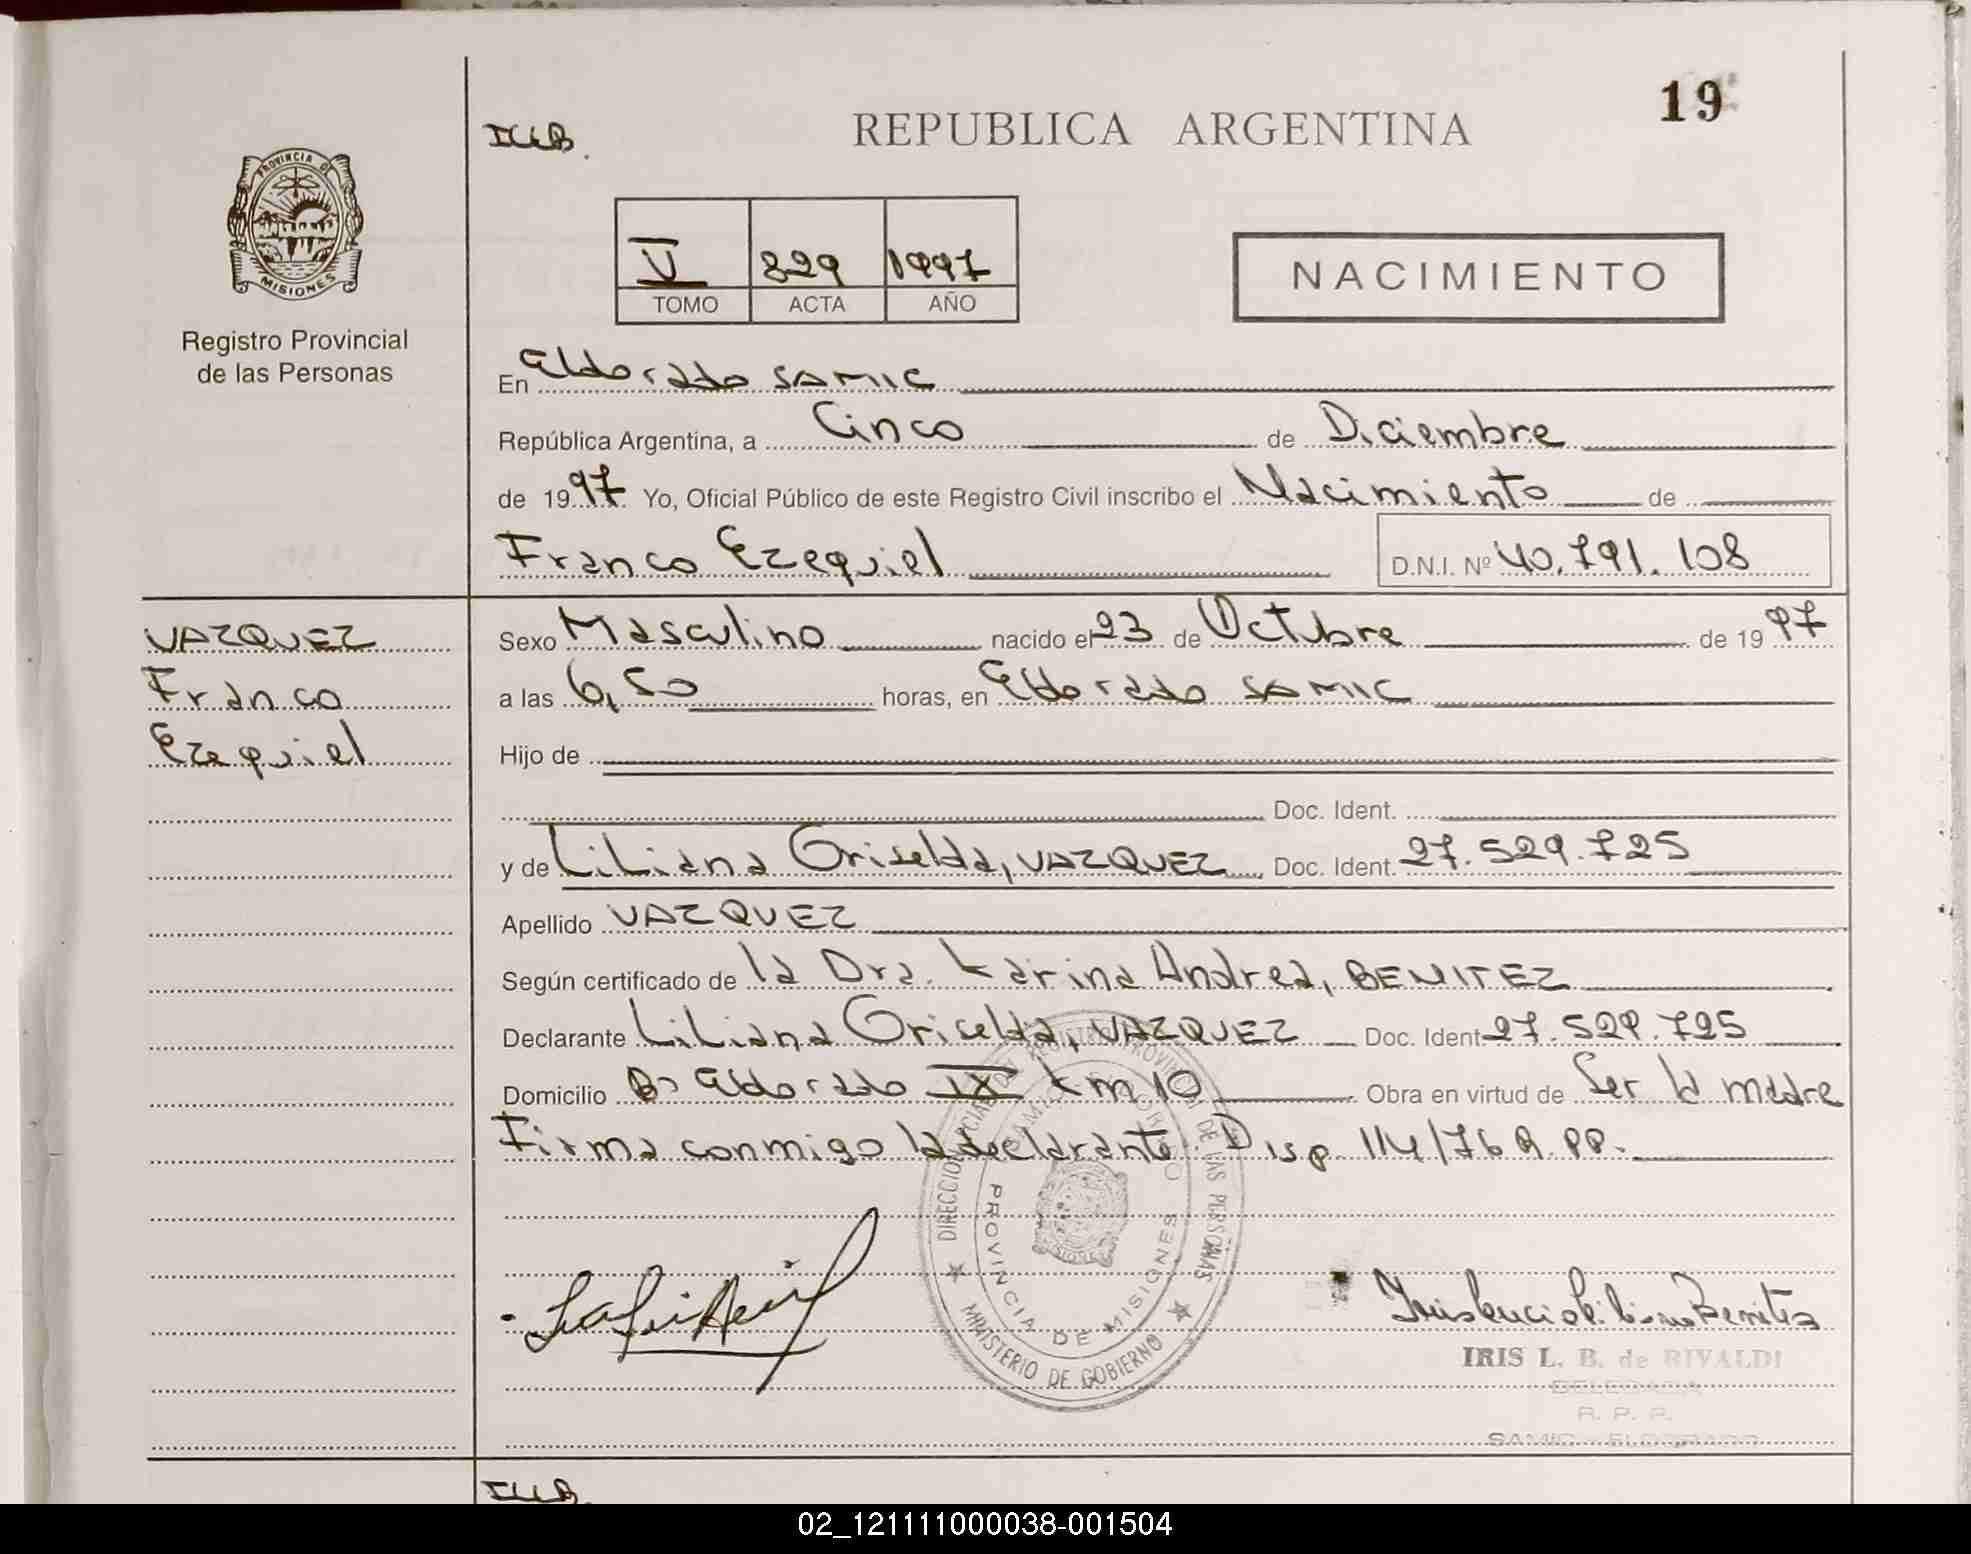 19
ILLB.
REPUBLICA ARGENTINA
PROVINCIA DE MISIONES
Registro Provincial
de las Personas
V 829 1997
TOMO ACTA AÑO
NACIMIENTO
En Eldorado SAMIC
República Argentina, a Cinco de Diciembre
de 1997 Yo, Oficial Público de este Registro Civil inscribo el Nacimiento de
Franco Ezequiel D.N.I. Nº 40.791.108
VAZQUEZ
Franco
Ezequiel
Sexo Masculino nacido el 23 de Octubre de 1997
a las 6,50 horas, en Eldorado SAMIC
Hijo de
Doc. Ident.
y de Liliana Griselda, VAZQUEZ Doc. Ident. 27.529.725
Apellido VAZQUEZ
Según certificado de la Dra. Karina Andrea, BENITEZ
Declarante Liliana Griselda, VAZQUEZ Doc. Ident 27.529.725
Domicilio Bº Eldorado IX km 10 Obra en virtud de Ser la madre
Firma conmigo la declarante. Disp. 114/76 R.PP.
DIRECCION REGISTRO PROVINCIAL DE LAS PERSONAS
MINISTERIO DE GOBIERNO
PROVINCIA DE MISIONES
IRIS L. B. de RIVALDI
DELEGADA
R. P. P.
SAMIC - ELDORADO
ILLB.
02_121111000038-001504